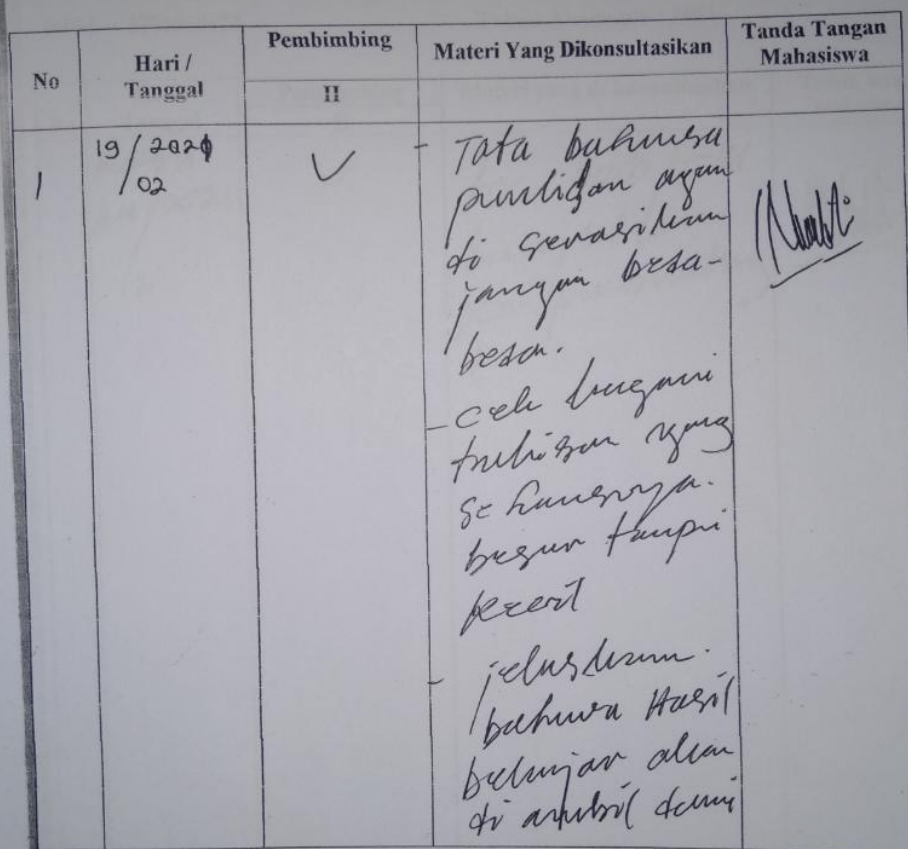 No
Hari /
Tanggal
Pembimbing
II
Materi Yang Dikonsultasikan
Tanda Tangan
Mahasiswa
1
19/2021
/02
- Tata bahwasa
penulisan agar
di serasikan
jangan besa-
besar.
- cek bagani
tulisan yang
seharusnya.
besar tanpi
kecil
- jelaskan.
bahwa Hasil
belajar akan
di ambil dari